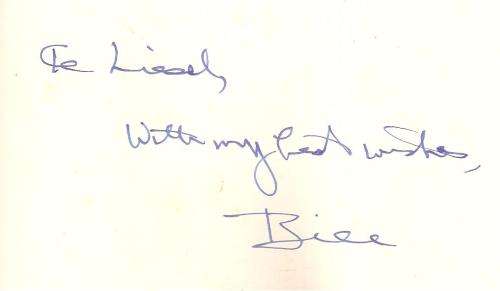 To Liesel,
With my best wishes,
Bill